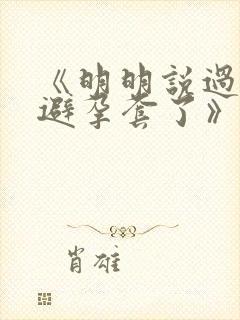 《明明說過
避孕套了》
肖雄